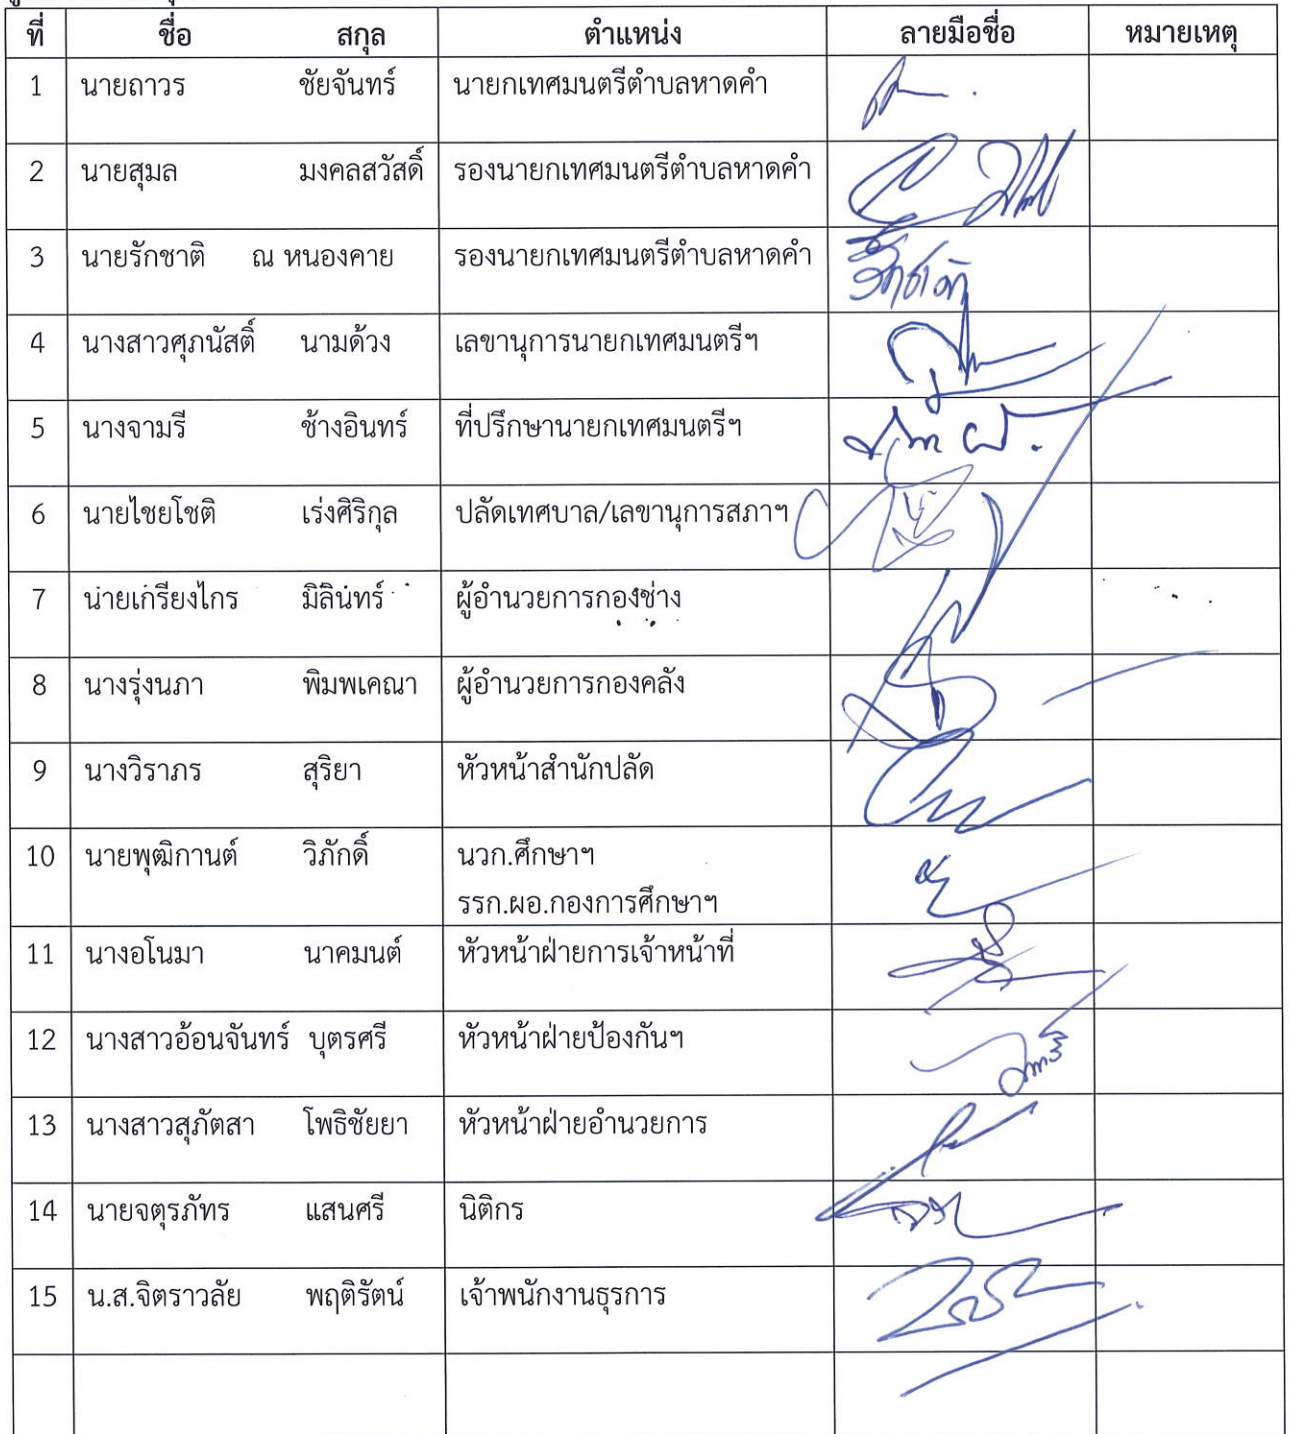 ที่ ชื่อ สกุล ตำแหน่ง ลายมือชื่อ หมายเหตุ
1 นายถาวร ชัยจันทร์ นายกเทศมนตรีตำบลหาดคำ
2 นายสุมล มงคลสวัสดิ์ รองนายกเทศมนตรีตำบลหาดคำ
3 นายรักชาติ ณ หนองคาย รองนายกเทศมนตรีตำบลหาดคำ รักชาติ
4 นางสาวศุภนัสติ์ นามด้วง เลขานุการนายกเทศมนตรีฯ
5 นางจามรี ช้างอินทร์ ที่ปรึกษานายกเทศมนตรีฯ
6 นายไชยโชติ เร่งศิริกุล ปลัดเทศบาล/เลขานุการสภาฯ
7 นายเกรียงไกร มิลินทร์ ผู้อำนวยการกองช่าง
8 นางรุ่งนภา พิมพเคณา ผู้อำนวยการกองคลัง
9 นางวิราภร สุริยา หัวหน้าสำนักปลัด
10 นายพุฒิกานต์ วิภักดิ์ นวก.ศึกษาฯ
รรก.ผอ.กองการศึกษาฯ
11 นางอโนมา นาคมนต์ หัวหน้าฝ่ายการเจ้าหน้าที่
12 นางสาวอ้อนจันทร์ บุตรศรี หัวหน้าฝ่ายป้องกันฯ
13 นางสาวสุภัตสา โพธิชัยยา หัวหน้าฝ่ายอำนวยการ
14 นายจตุรภัทร แสนศรี นิติกร
15 น.ส.จิตราวลัย พฤติรัตน์ เจ้าพนักงานธุรการ